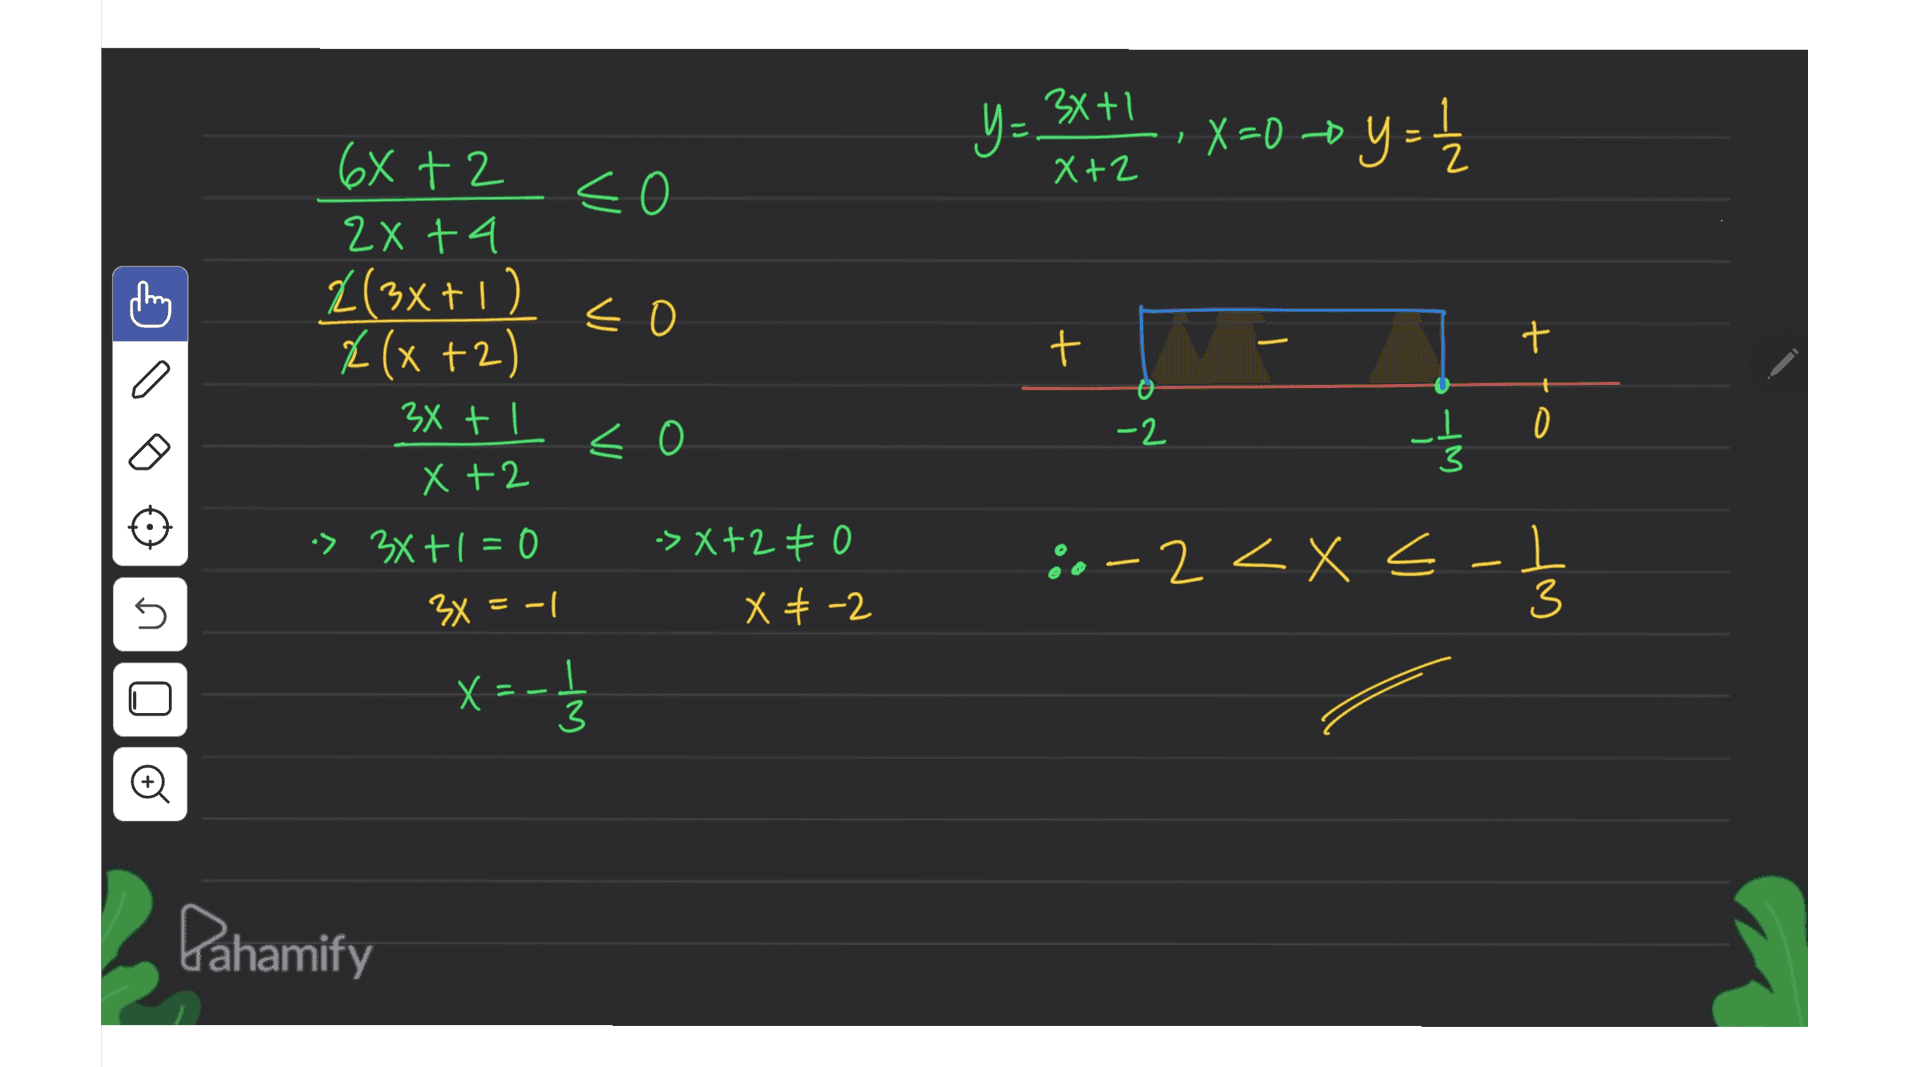 6x + 2 / 2x + 4 ≤ 0
2(3x + 1) / 2(x + 2) ≤ 0
3x + 1 / x + 2 ≤ 0
·> 3x + 1 = 0
3x = -1
x = - 1/3
-> x + 2 ≠ 0
x ≠ -2
y = 3x + 1 / x + 2 , x = 0 → y = 1/2
+ - +
-2 - 1/3 0
∴ -2 < x ≤ - 1/3
Pahamify